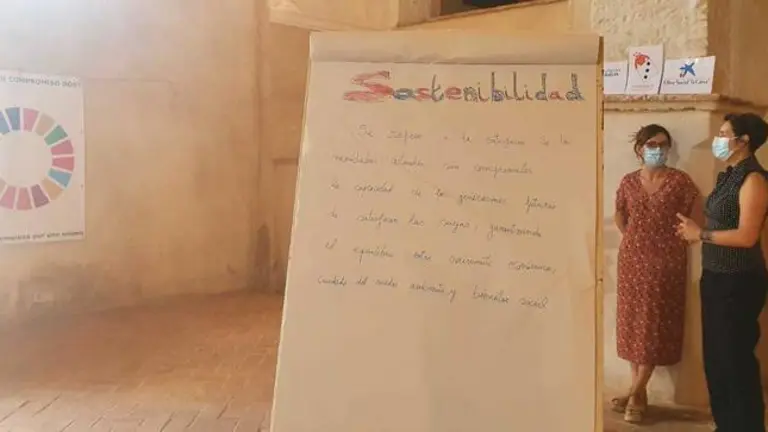 COMPROMISO ODS
Sostenibilidad
Se refiere a la satisfacción de las
necesidades actuales sin comprometer
la capacidad de las generaciones futuras
de satisfacer las suyas, garantizando
el equilibrio entre crecimiento económico,
cuidado del medio ambiente y bienestar social